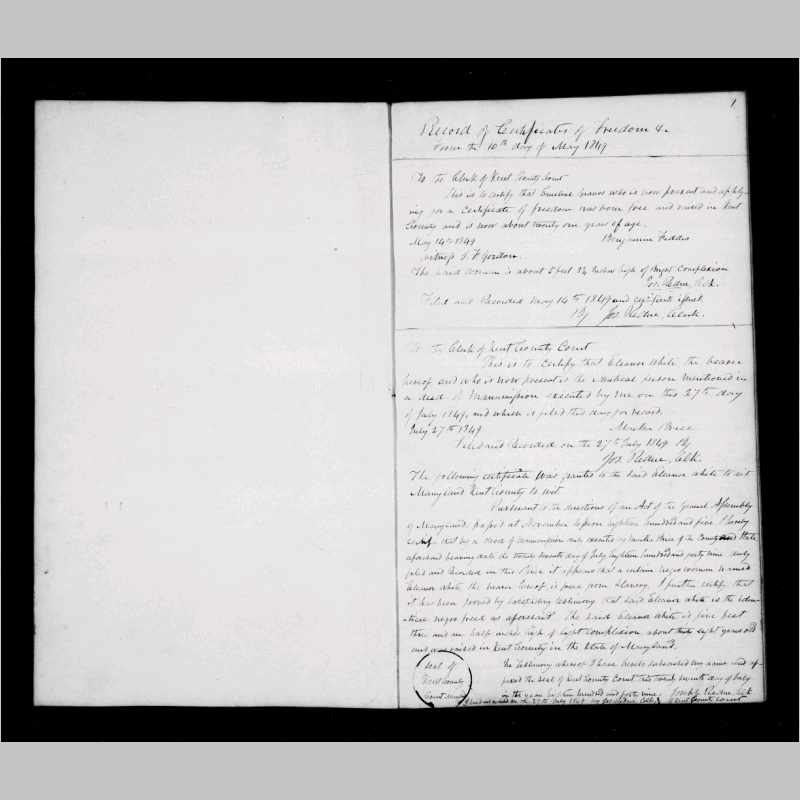 1
Record of Certificates of Freedom &c
From the 10th day of May 1849
To the Clerk of Kent County Court
This is to certify that Emeline who is now present and apply-
ing for a certificate of freedom was born free and raised in Kent
County and is now about twenty one years of age.
May 14th 1849 Benjamin
witness J. F. Gordon
The said woman is about 5 feet high of Bright Complexion
Jos. Redue, Clk.
Filed and Recorded May 14th 1849 and certificate issued
By Jos Redue, Clerk.
To the Clerk of Kent County Court
This is to certify that Eleanor White the bearer
hereof and who is now present is the identical person mentioned in
a deed of Manumission executed by me on this 27th day
of July 1849, and which is filed this day for record.
July 27th 1849
Filed and Recorded on the 27th July 1849 By
Jos Redue, Clk.
The following certificate was granted to the said Eleanor White to wit
Maryland Kent County to wit
Pursuant to the directions of an Act of the General Assembly
of Maryland, passed at November Session eighteen hundred and five, I hereby
certify that by a deed of manumission executed by of the County and State
aforesaid bearing date the twenty seventh day of July eighteen hundred and forty nine duly
filed and recorded in this Office it appears that a certain negro woman named
Eleanor White the bearer hereof, is free from slavery, I further certify that
it has been proved by satisfactory testimony that said Eleanor White is the iden-
tical negro freed as aforesaid. The said Eleanor White is five feet
three and one half inches high of light complexion about eight years old
and was raised in Kent County in the State of Maryland.
Seal of
Kent County
Court
In Testimony whereof I have hereto subscribed my name and af-
fixed the seal of Kent County Court this twenty seventh day of July
in the year eighteen hundred and forty nine. Joseph Redue, Clk
Filed and recorded on the 27th July 1849 by Jos Redue Clk. of Kent County Court